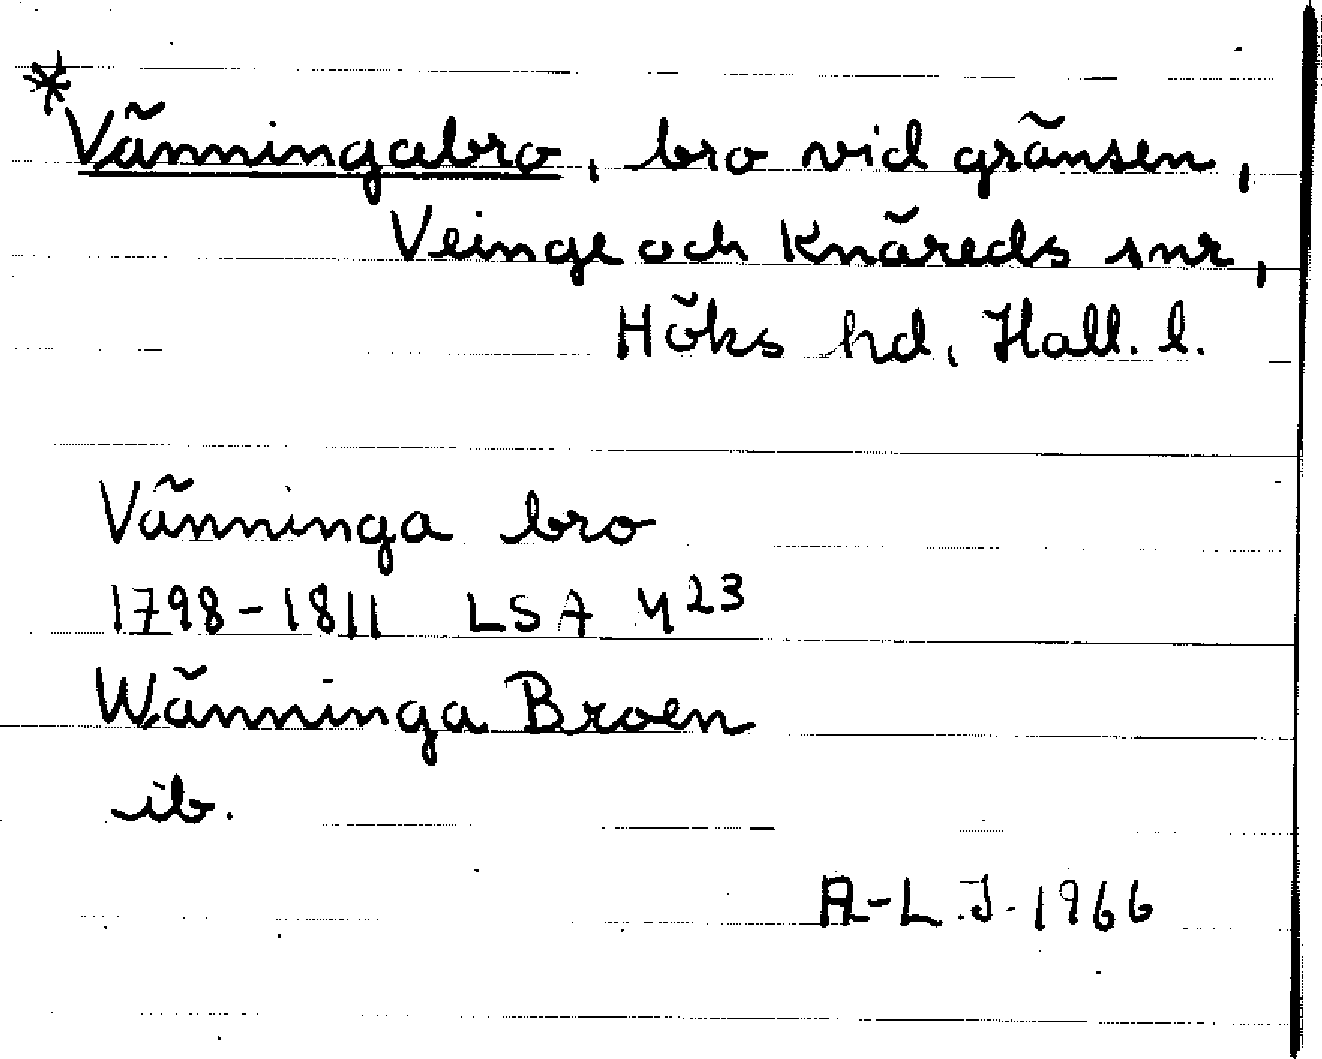 *Vänningabro, bro vid gränsen,
Veinge och Knäreds snr,
Höks hd, Hall. l.
Vänninga bro
1798-1811 LSA Y23
Wänninga Broen
ib.
A-L.J. 1966